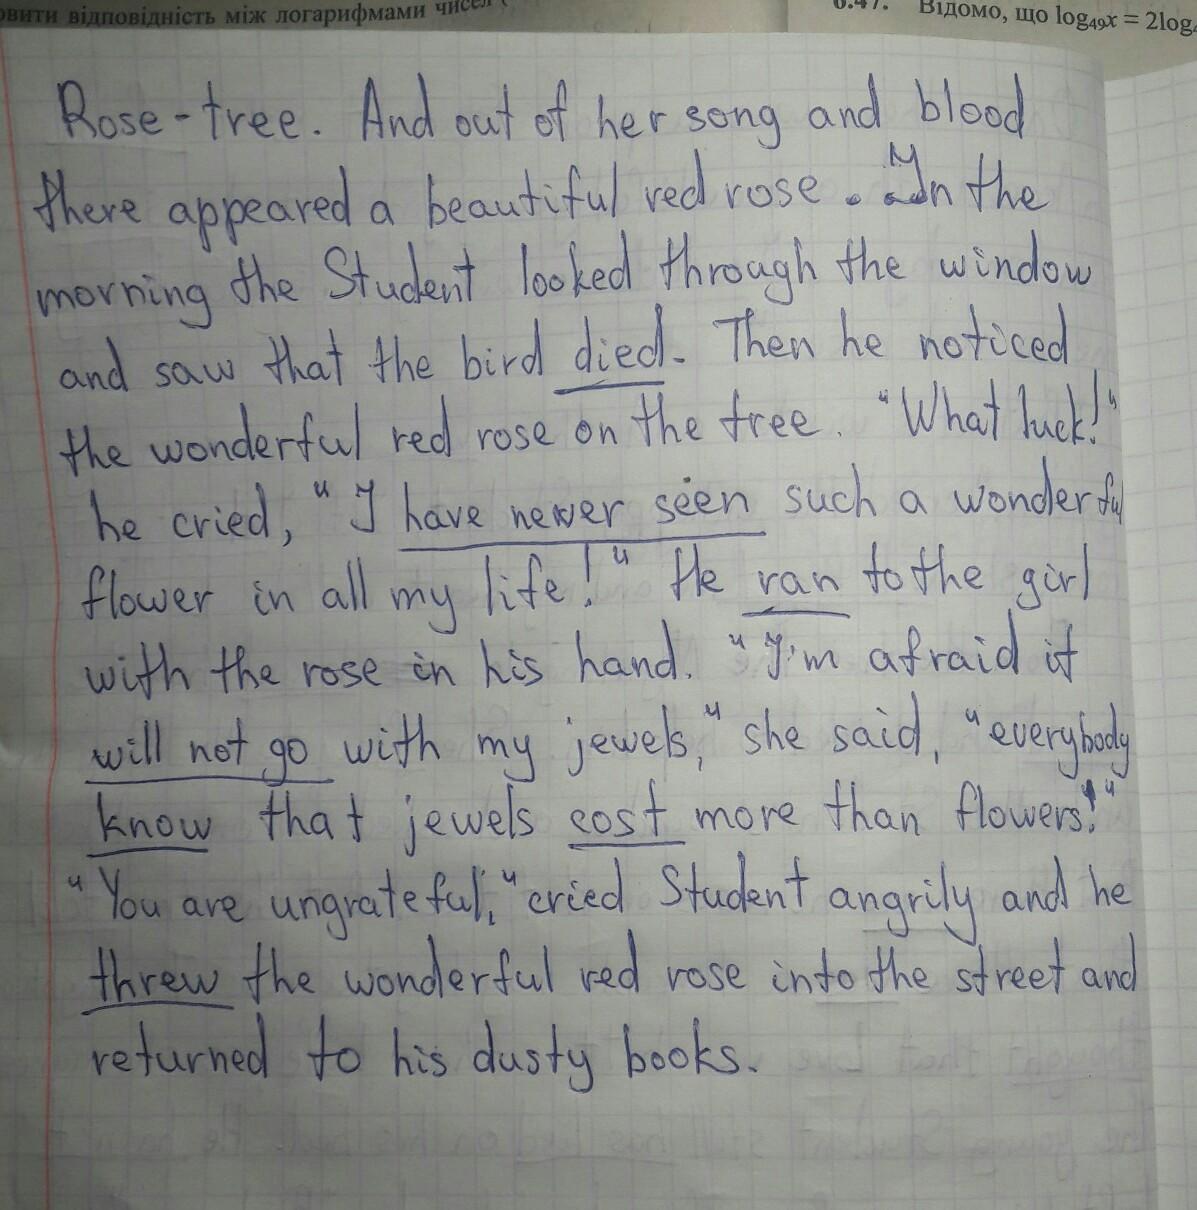 овити відповідність між логарифмами чисел (
6.47. Відомо, що log₄₉x = 2log₄
Rose-tree. And out of her song and blood
there appeared a beautiful red rose. In the
morning the Student looked through the window
and saw that the bird died. Then he noticed
the wonderful red rose on the tree. "What luck!"
he cried, "I have never seen such a wonderful
flower in all my life!" He ran to the girl
with the rose in his hand. "I'm afraid it
will not go with my jewels," she said, "everybody
know that jewels cost more than flowers!"
"You are ungrateful," cried Student angrily and he
threw the wonderful red rose into the street and
returned to his dusty books.